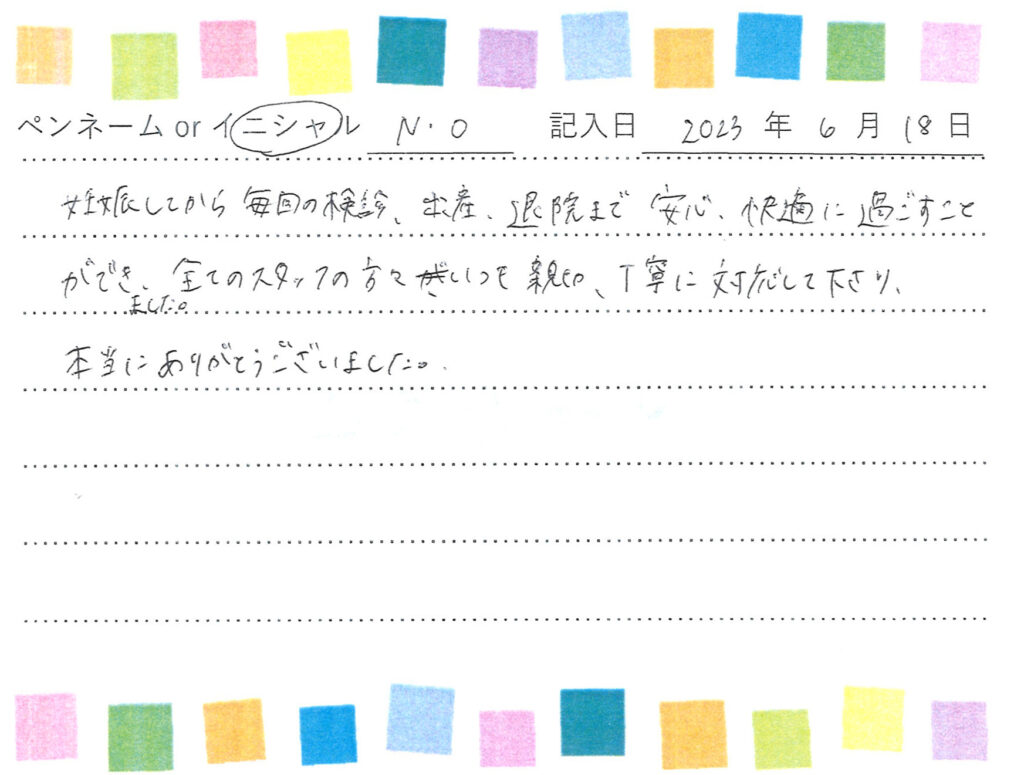 ペンネーム or イニシャル N.O 記入日 2023 年 6 月 18 日
妊娠してから毎回の検診、出産、退院まで安心、快適に過ごすこと
ができ、全てのスタッフの方々がいつも親切、丁寧に対応して下さり、
ました。
本当にありがとうございました。